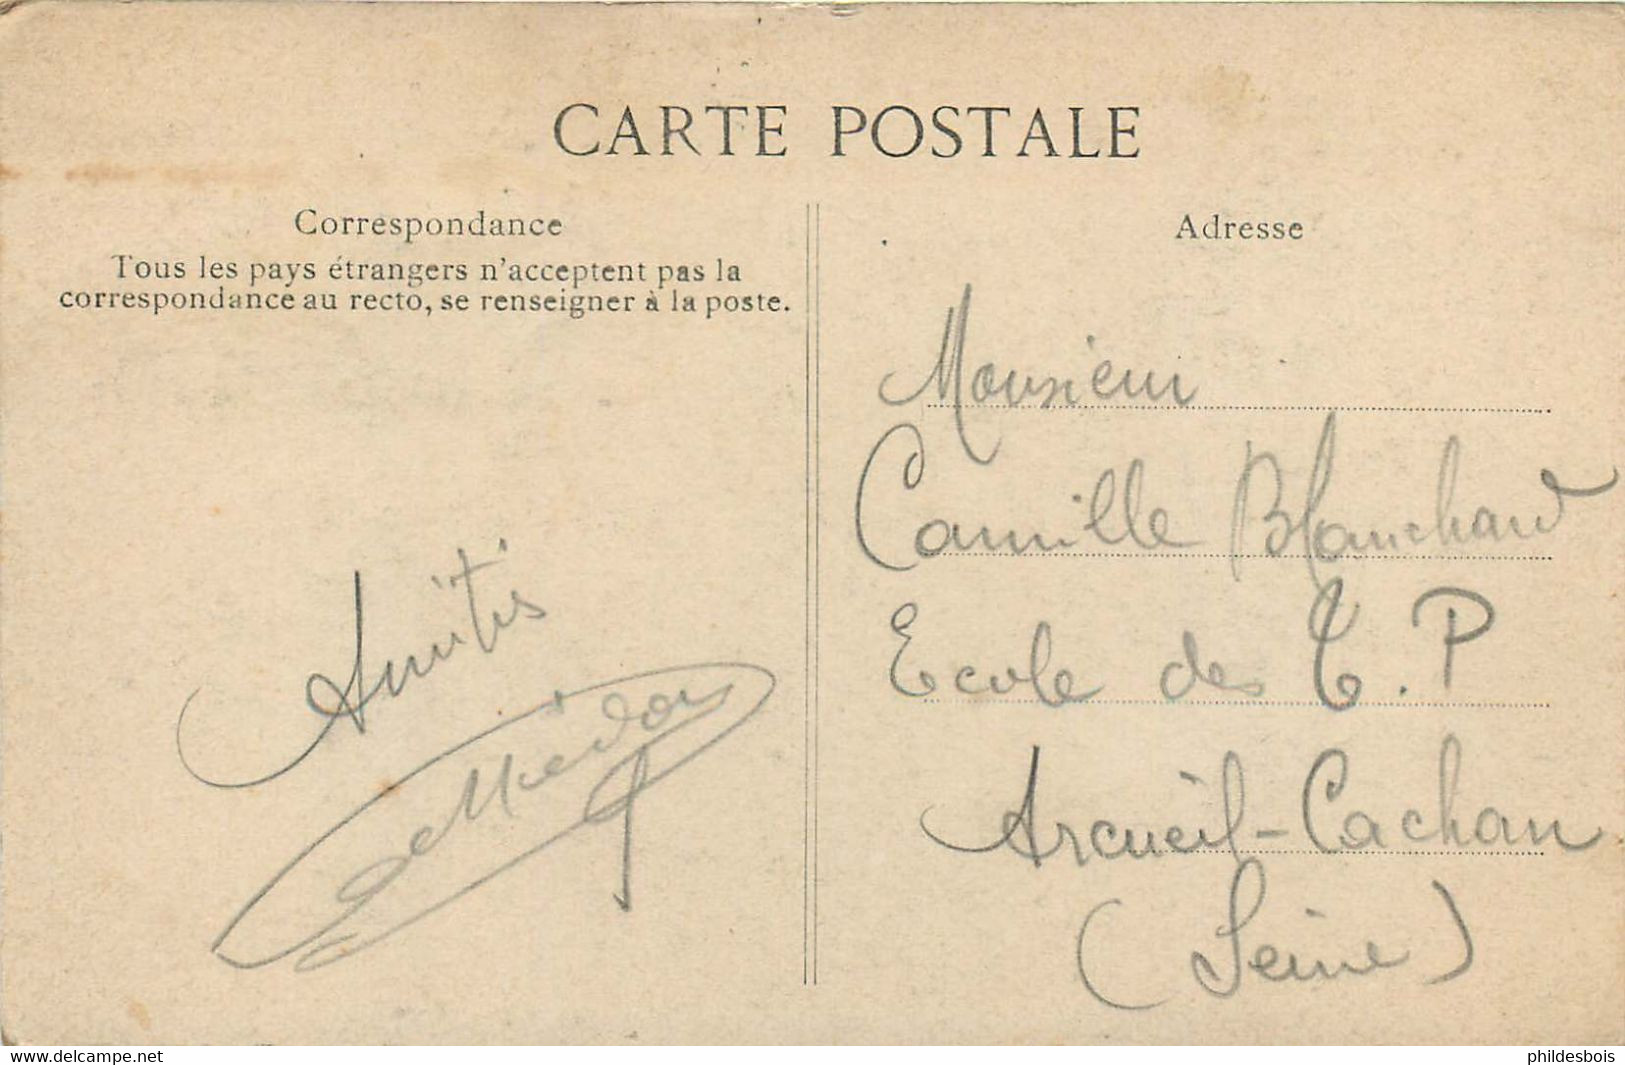 CARTE POSTALE
Correspondance
Tous les pays étrangers n'acceptent pas la
correspondance au recto, se renseigner à la poste.
Amitis
Adresse
Monsieur
Camille Blanchard
Ecole des T.P
Arcueil-Cachan
(Seine)
www.delcampe.net
phildesbois